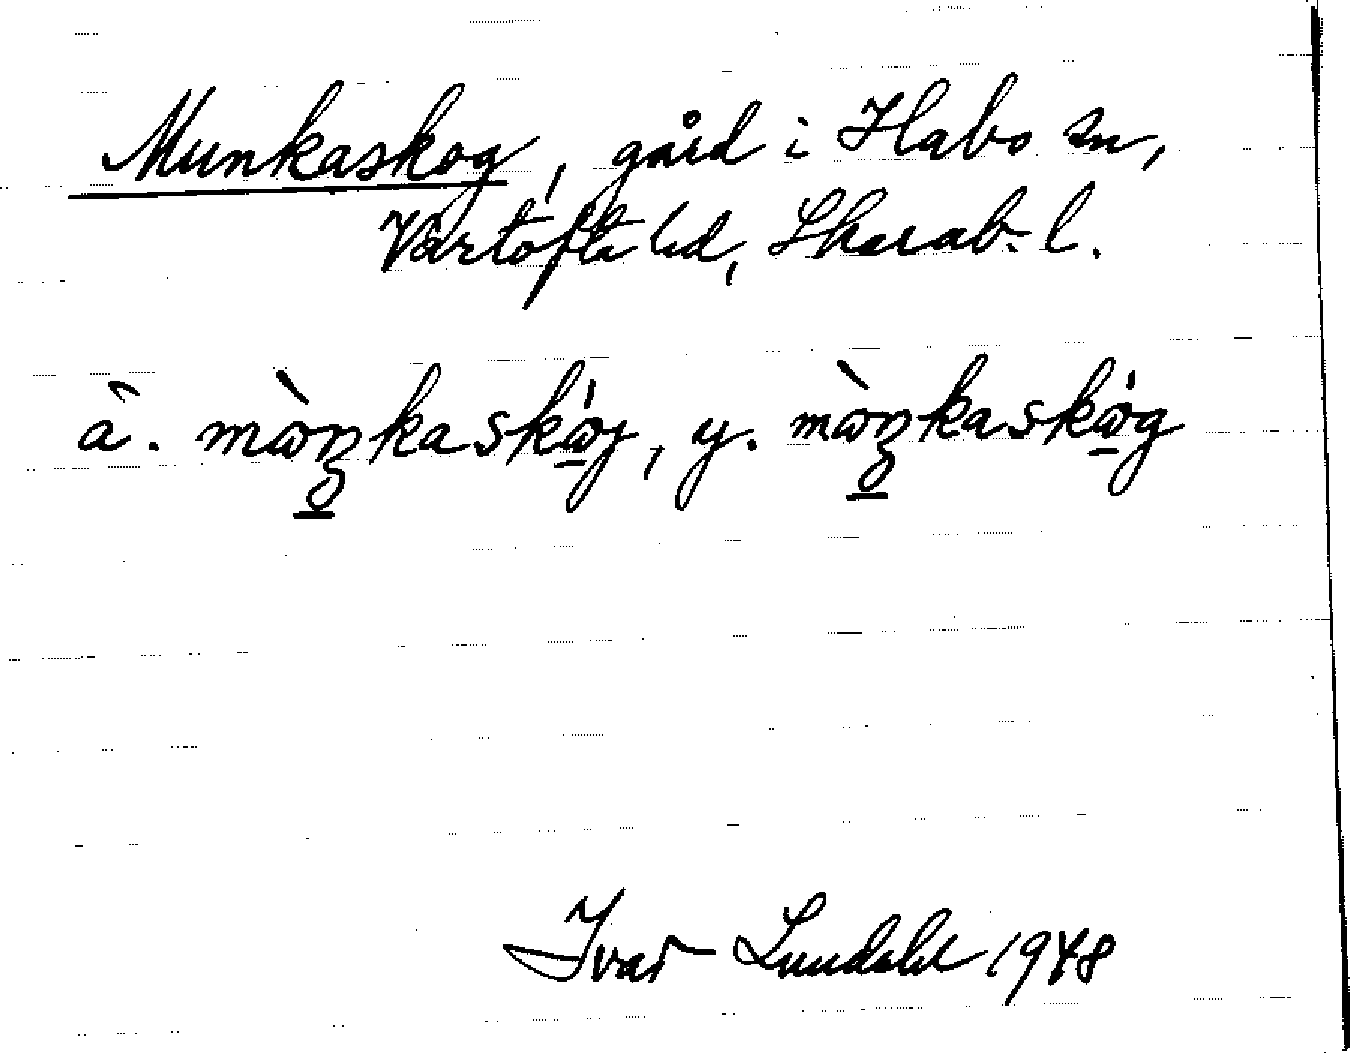 Munkaskog, gård i Habo sn,
Vartofta hd, Skarab. l.
ä. mòŋkaskóg, y. mòŋkaskóg
Ivar Lundahl 1948